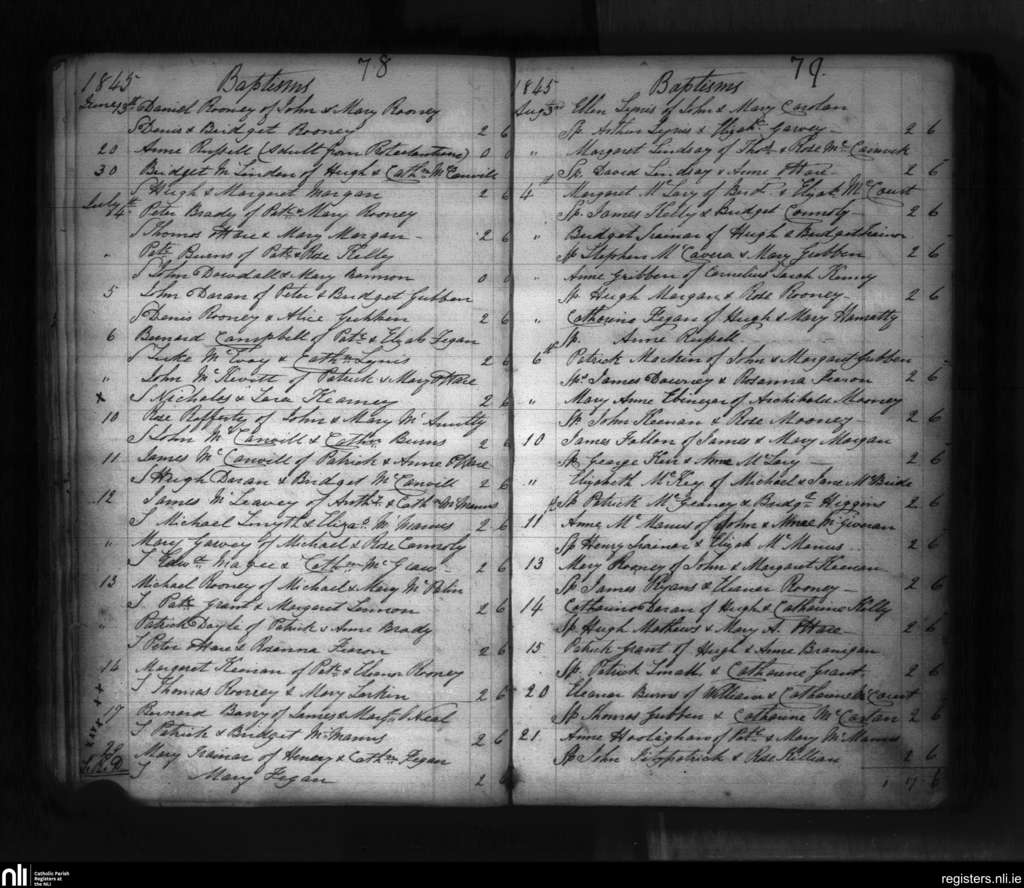 78
1845 Baptisms
June 13th Daniel Rooney of John & Mary Rooney
S Denis & Bridget Rooney 2 6
20 Anne Russell (Adult from Protestantism) 0 0
30 Bridget McLinden of Hugh & Cathn McConvill
S Hugh & Margaret Morgan 2 6
July 4th Peter Brady of Patk & Mary Rooney
S Thomas OHare & Mary Morgan 2 6
" Patk Burns of Patk & Rose Kelly
S John Dowdall & Mary Bannon 0 0
5 John Doran of Peter & Bridget Gribben
S Denis Rooney & Alice Gribben 2 6
6 Bernard Campbell of Patk & Elizab Fegan
S Luke McEvoy & Cathn Lynis 2 6
" John McKevitt of Patrick & Mary OHare
x S Nicholas & Sara Kearney 2 6
10 Rose Rafferty of John & Mary McAnulty
S John McConvill & Cathn Burns 2 6
11 James McConvill of Patrick & Anne OHare
S Hugh Doran & Bridget McConvill 2 6
12 James McLeavey of Anthy & Cath McManus
S Michael Smyth & Eliza McManus 2 6
" Mary Garvey of Michael & Rose Connoly
S Edwd Magee & Cathn McGraw 2 6
13 Michael Rooney of Michael & Mary McPolin
S Patk Grant & Margaret Lennon 2 6
" Patrick Doyle of Patrick & Anne Brady
S Peter OHare & Rosanna Fearon 2 6
14 Margaret Keenan of Patk & Eleanor Rooney
S Thomas Rooney & Mary Larkin 2 6
17 Bernard Barry of James & Margt ONeal
S Patrick & Bridget McManus 2 6
29 Mary Trainor of Henry & Cathn Fegan
S Mary Fegan 2 6
79
1845 Baptisms
Aug 3rd Ellen Lynis of John & Mary Carolan
Sp. Arthur Lynis & Elizath Garvey 2 6
" Margaret Lindsay of Thos & Rose McCormick
Sp. David Lindsay & Anne OHare 2 6
4 Margaret McLary of Bernd & Elizab McCourt
Sp. James Kelly & Bridget Connoly 2 6
" Bridget Trainor of Hugh & Bridget Trainor
Sp Stephen McCavera & Mary Gribben 2 6
" Anne Gribben of Cornelius Sarah Kenny
Sp. Hugh Morgan & Rose Rooney 2 6
" Catharine Fegan of Hugh & Mary Hanratty
Sp. Anne Russell
6th Patrick Mackin of John & Margaret Gribben
Sp. James Downey & Rosanna Fearon 2 6
" Mary Anne Ebinezar of Archibald Mooney
Sp. John Keenan & Rose Mooney 2 6
10 James Fallon of James & Mary Morgan
Sp. George Kerr & Anne McLary 2 6
" Elizabeth McKey of Michael & Jane McBride
Sp Patrick McGeaney & Bridgt Higgins 2 6
11 Anne McManus of John & McGivenan
Sp Henry Trainor & Elizab McManus 2 6
13 Mary Rooney of John & Margaret Keenan
Sp James Ryans & Eleanor Rooney 2 6
14 Catharine Doran of Hugh & Catharine Kelly
Sp Hugh Mathews & Mary A. OHare 2 6
15 Patrick Grant of Hugh & Anne Branigan
Sp. Patrick Small & Catharine Grant 2 6
20 Eleanor Burns of William & Catharine McCourt
Sp Thomas Gribben & Catharine McCartan 2 6
21 Anne Hoolighan of Patk & Mary McManus
Sp John Fitzpatrick & Rose Killian 2 6
1 17 6
nli
Catholic Parish
Registers at
the NLI
registers.nli.ie